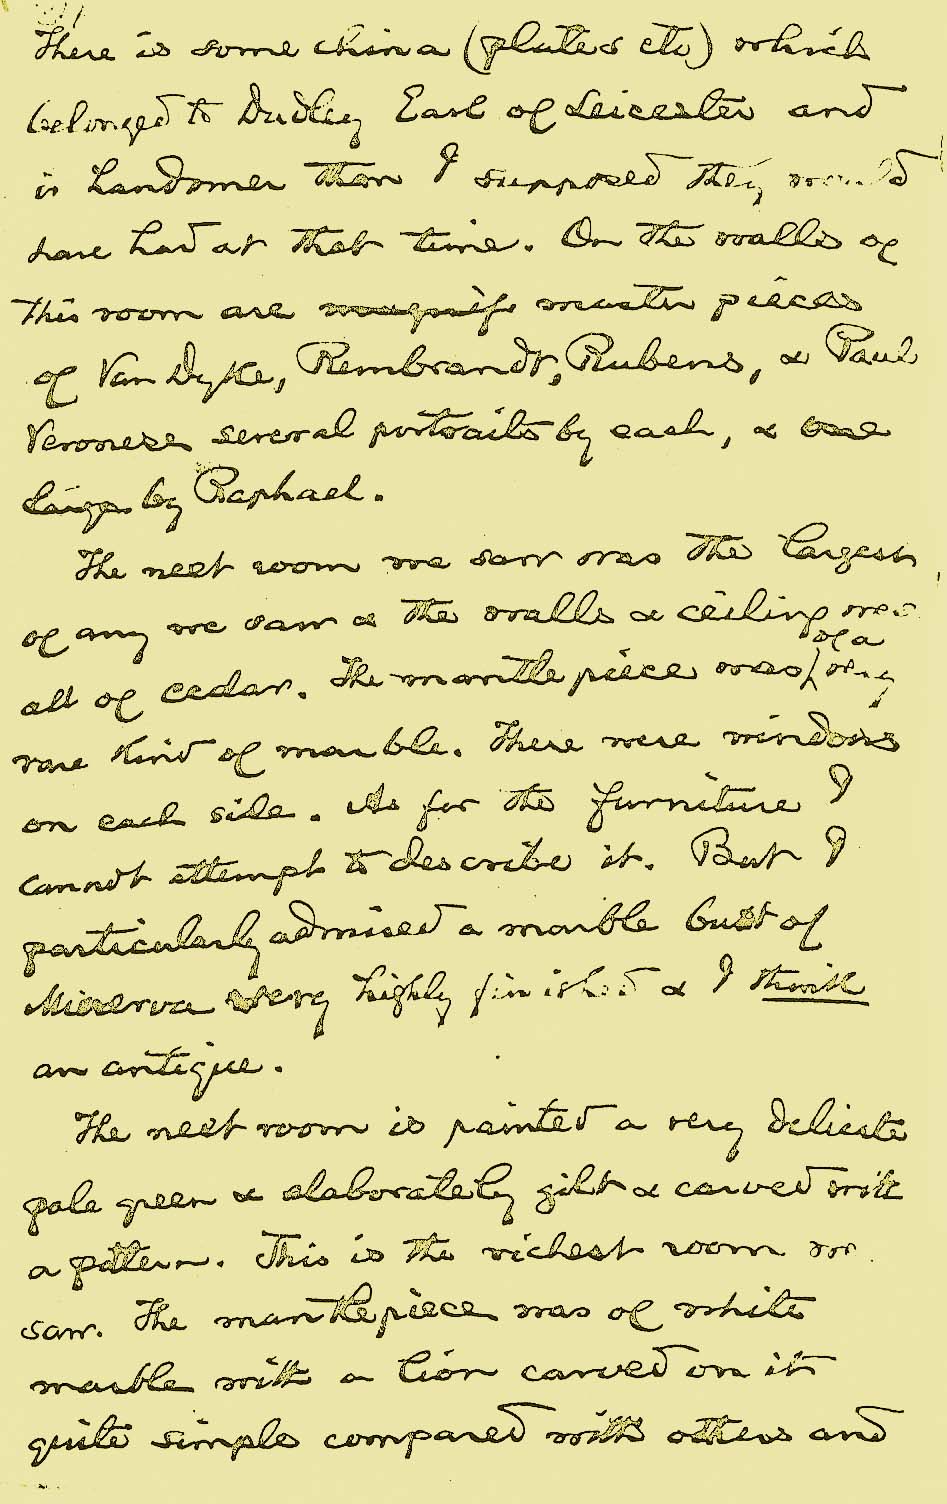 There is some china (plates etc) which
belonged to Dudley Earl of Leicester and
is handsomer than I supposed they would
have had at that time. On the walls of
this room are magnif master pieces
of Van Dyke, Rembrandt, Rubens, & Paul
Veronese several portraits by each, & one
large by Raphael.
The next room we saw was the largest
of any we saw & the walls & ceiling were
all of cedar. The mantle piece was of a very
rare kind of marble. There were windows
on each side. As for the furniture I
cannot attempt to describe it. But I
particularly admired a marble bust of
Minerva very highly finished & I think
an antique.
The next room is painted a very delicate
pale green & elaborately gilt & carved with
a pattern. This is the richest room we
saw. The mantlepiece was of white
marble with a lion carved on it
quite simple compared with others and